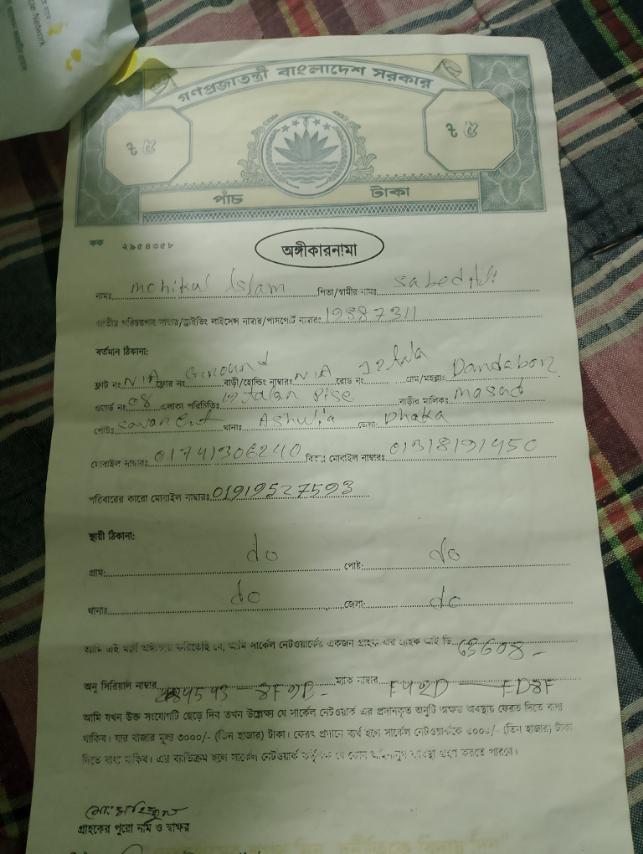 গণপ্রজাতন্ত্রী বাংলাদেশ সরকার
৳ ৫
৳ ৫
পাঁচ টাকা
কক ২৯৫৪০৫৮
অঙ্গীকারনামা
নামঃ mohikul Islam পিতা/স্বামীর নামঃ
জাতীয় পরিচয়পত্র নাম্বার/ড্রাইভিং লাইসেন্স নাম্বার/পাসপোর্ট নাম্বারঃ
বর্তমান ঠিকানা:
ফ্লাট নং N/A ফ্লোর নং Ground বাড়ী/হোল্ডিং নাম্বারঃ N/A রোড নং গ্রাম/মহল্লা
ওয়ার্ড নং 08 এলাকা পরিচিতিঃ বাড়ীর মালিকঃ
পোষ্টঃ থানাঃ Ashulia জেলাঃ Dhaka
মোবাইল নাম্বারঃ মোবাইল নাম্বারঃ 01318191450
পরিবারের কারো মোবাইল নাম্বারঃ 01919527593
স্থায়ী ঠিকানা:
গ্রাম: do পোষ্ট: do
থানাঃ do জেলা: do
আমি এই মর্মে অঙ্গীকার করিতেছি যে, আমি সার্কেল নেটওয়ার্কের একজন গ্রাহক যার গ্রাহক আই ডি
অনু সিরিয়াল নাম্বার ম্যাক নাম্বার F42D FD8F
আমি যখন উক্ত সংযোগটি ছেড়ে দিব তখন উল্লেখ্য যে সার্কেল নেটওয়ার্ক এর প্রদানকৃত অনুটি অক্ষত অবস্থায় ফেরত দিতে বাধ্য
থাকিব। যার বাজার মূল্য ৩০০০/- (তিন হাজার) টাকা। ফেরৎ প্রদানে ব্যর্থ হলে সার্কেল নেটওয়ার্ককে ৩০০০/- (তিন হাজার) টাকা
দিতে বাধ্য থাকিব। এর ব্যতিক্রম হলে সার্কেল নেটওয়ার্ক কর্তৃক যে কোন আইনানুগ ব্যবস্থা গ্রহণ করতে পারবে।
গ্রাহকের পুরো নাম ও স্বাক্ষর